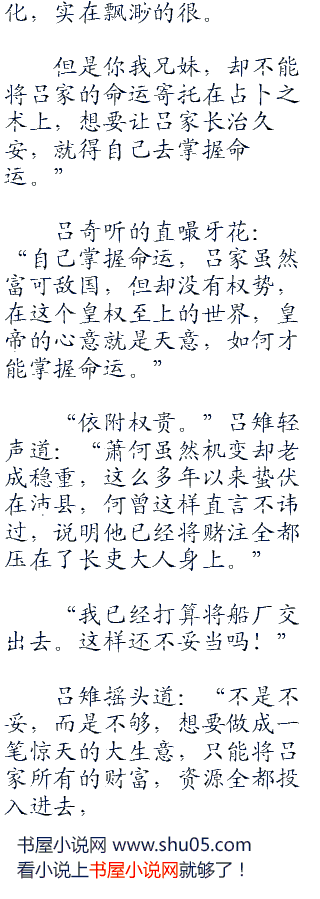 化，实在飘渺的很。
但是你我兄妹，却不能
将吕家的命运寄托在占卜之
术上，想要让吕家长治久
安，就得自己去掌握命
运。”
吕奇听的直嘬牙花：
“自己掌握命运，吕家虽然
富可敌国，但却没有权势，
在这个皇权至上的世界，皇
帝的心意就是天意，如何才
能掌握命运。”
“依附权贵。”吕雉轻
声道：“萧何虽然机变却老
成稳重，这么多年以来蛰伏
在沛县，何曾这样直言不讳
过，说明他已经将赌注全都
压在了长吏大人身上。”
“我已经打算将船厂交
出去。这样还不妥当吗！”
吕雉摇头道：“不是不
妥，而是不够，想要做成一
笔惊天的大生意，只能将吕
家所有的财富，资源全都投
入进去，
书屋小说网 www.shu05.com
看小说上书屋小说网就够了！